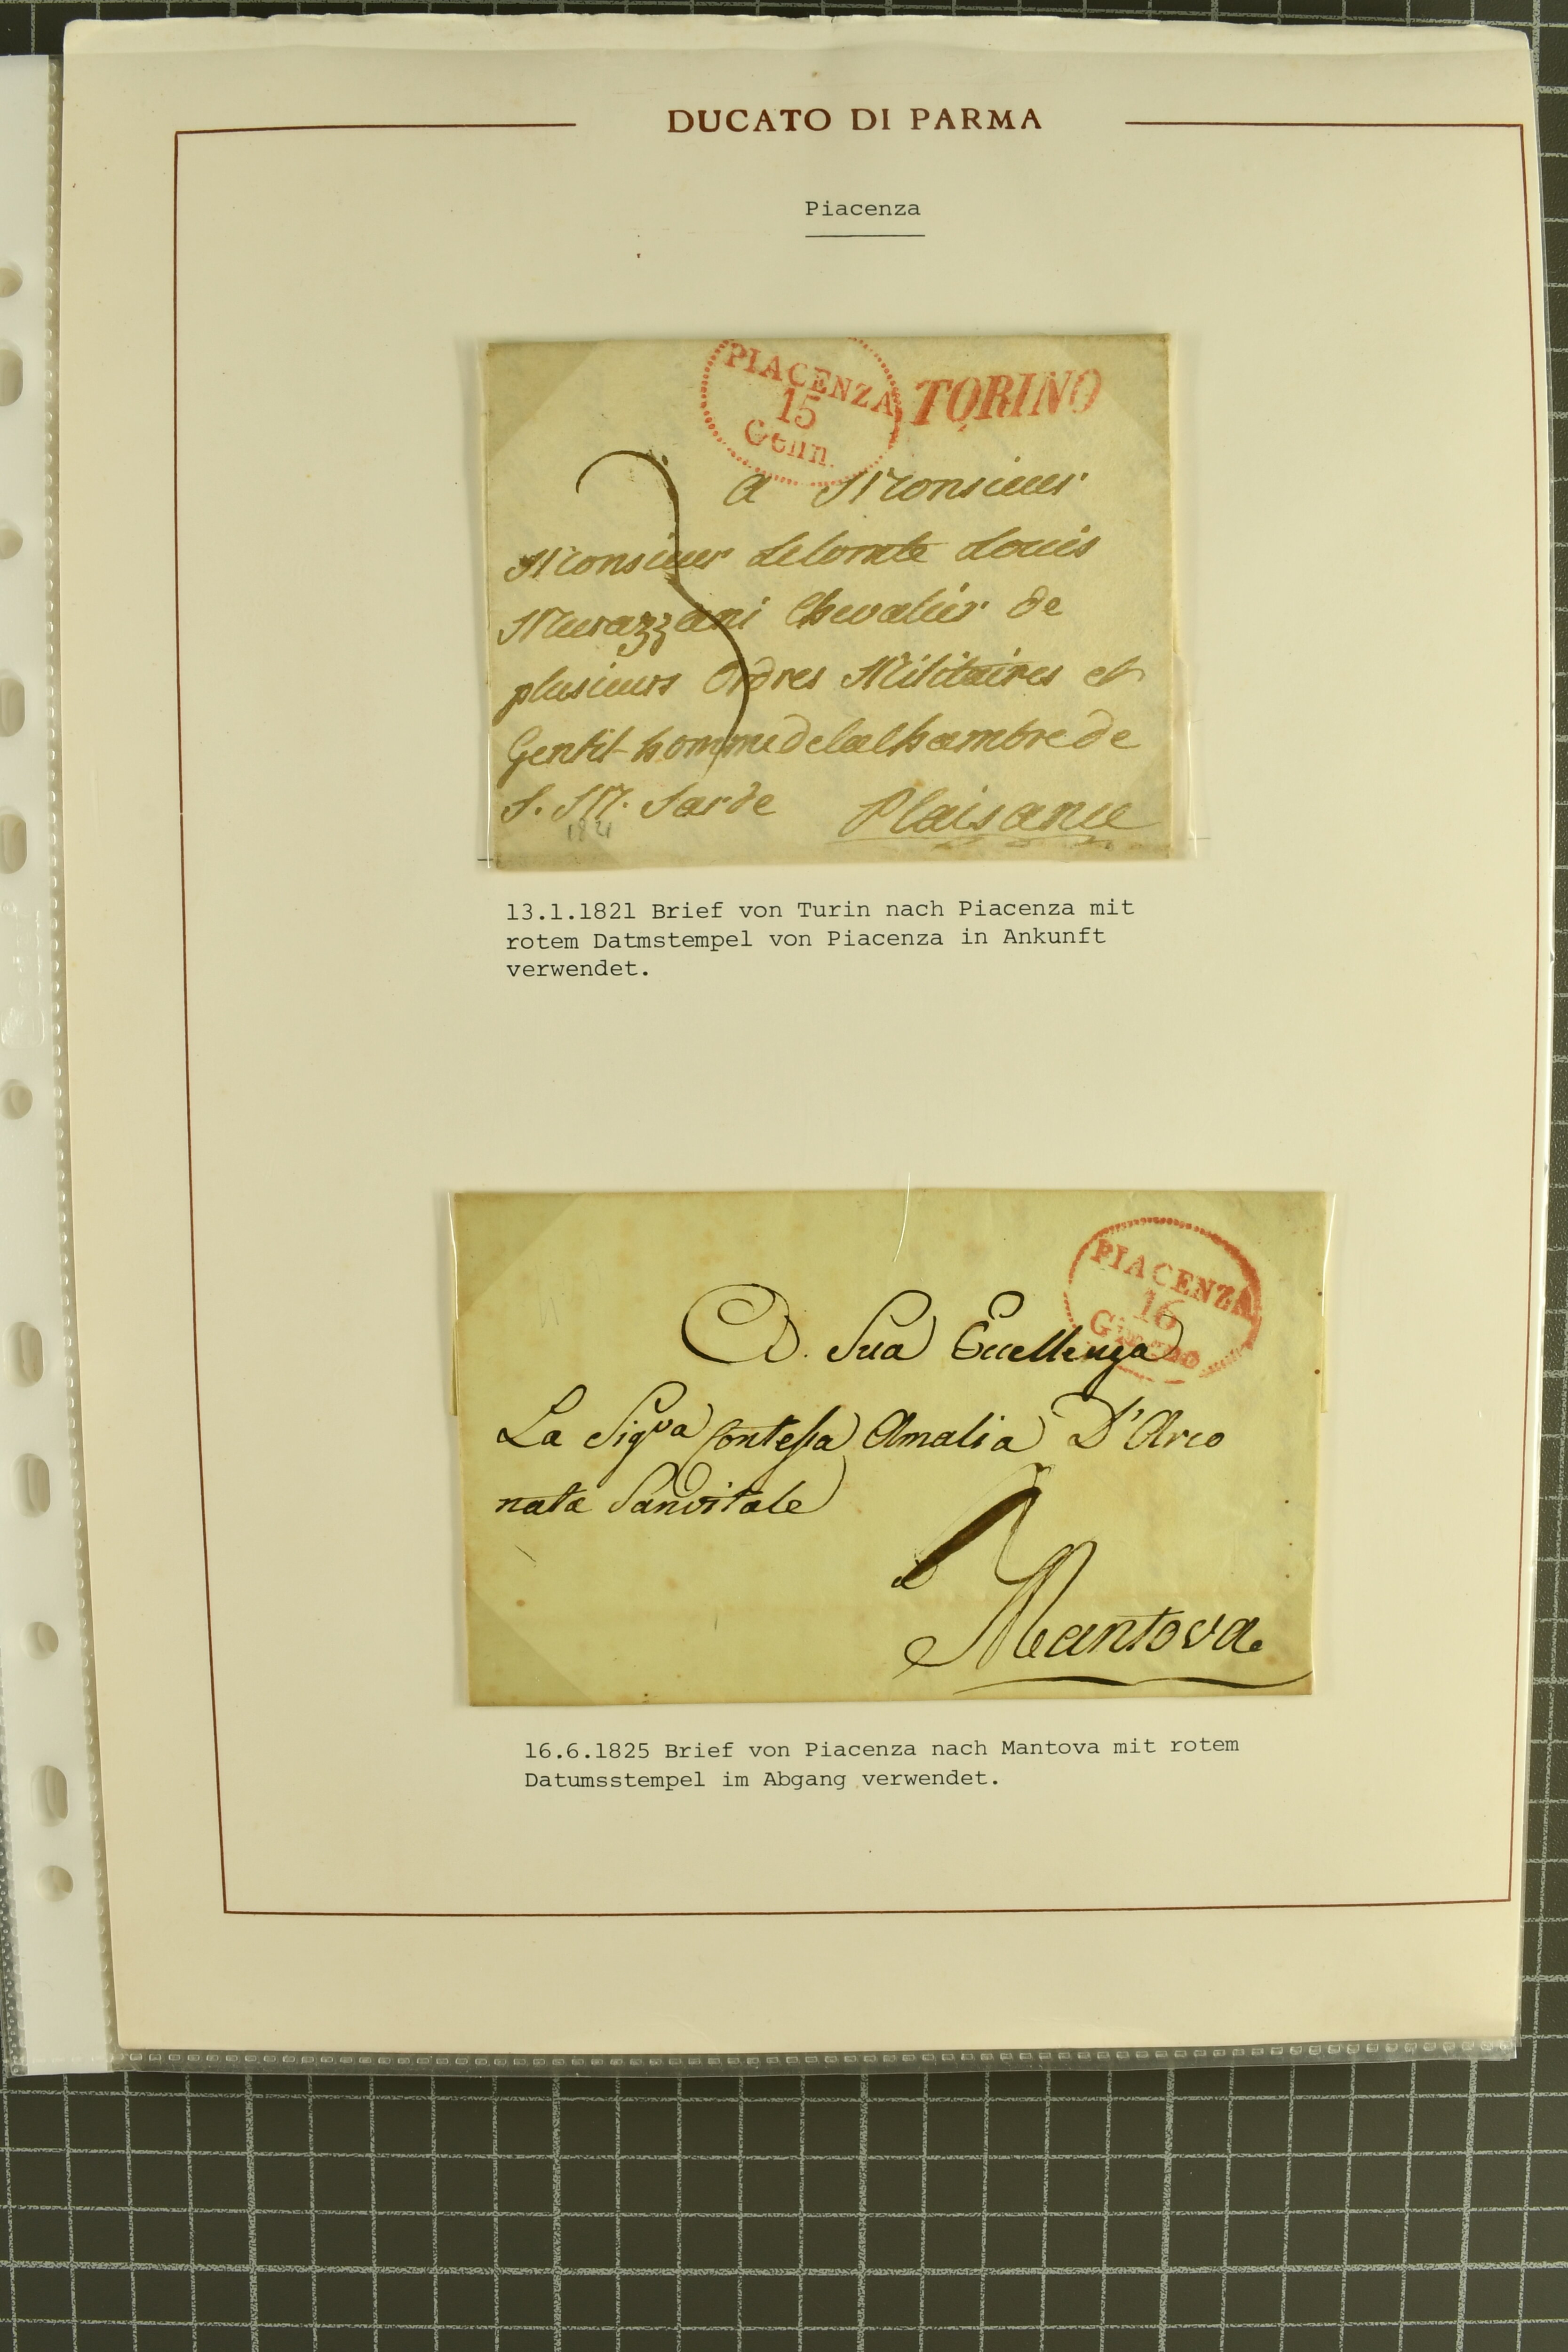 DUCATO DI PARMA
Piacenza
PIACENZA
15
Genn.
TORINO
A Monsieur
Monsieur Le Comte Louis
Murazzani Chevalier de
plusieurs Ordres Militaires et
Gentil-homme de la Chambre de
S. M. Sarde Plaisance
1821
13.1.1821 Brief von Turin nach Piacenza mit
rotem Datmstempel von Piacenza in Ankunft
verwendet.
PIACENZA
16
Giugno
A. Sua Eccellenza
La Sigra Contessa Amalia D'Arco
nata Sanvitale
Mantova
16.6.1825 Brief von Piacenza nach Mantova mit rotem
Datumsstempel im Abgang verwendet.